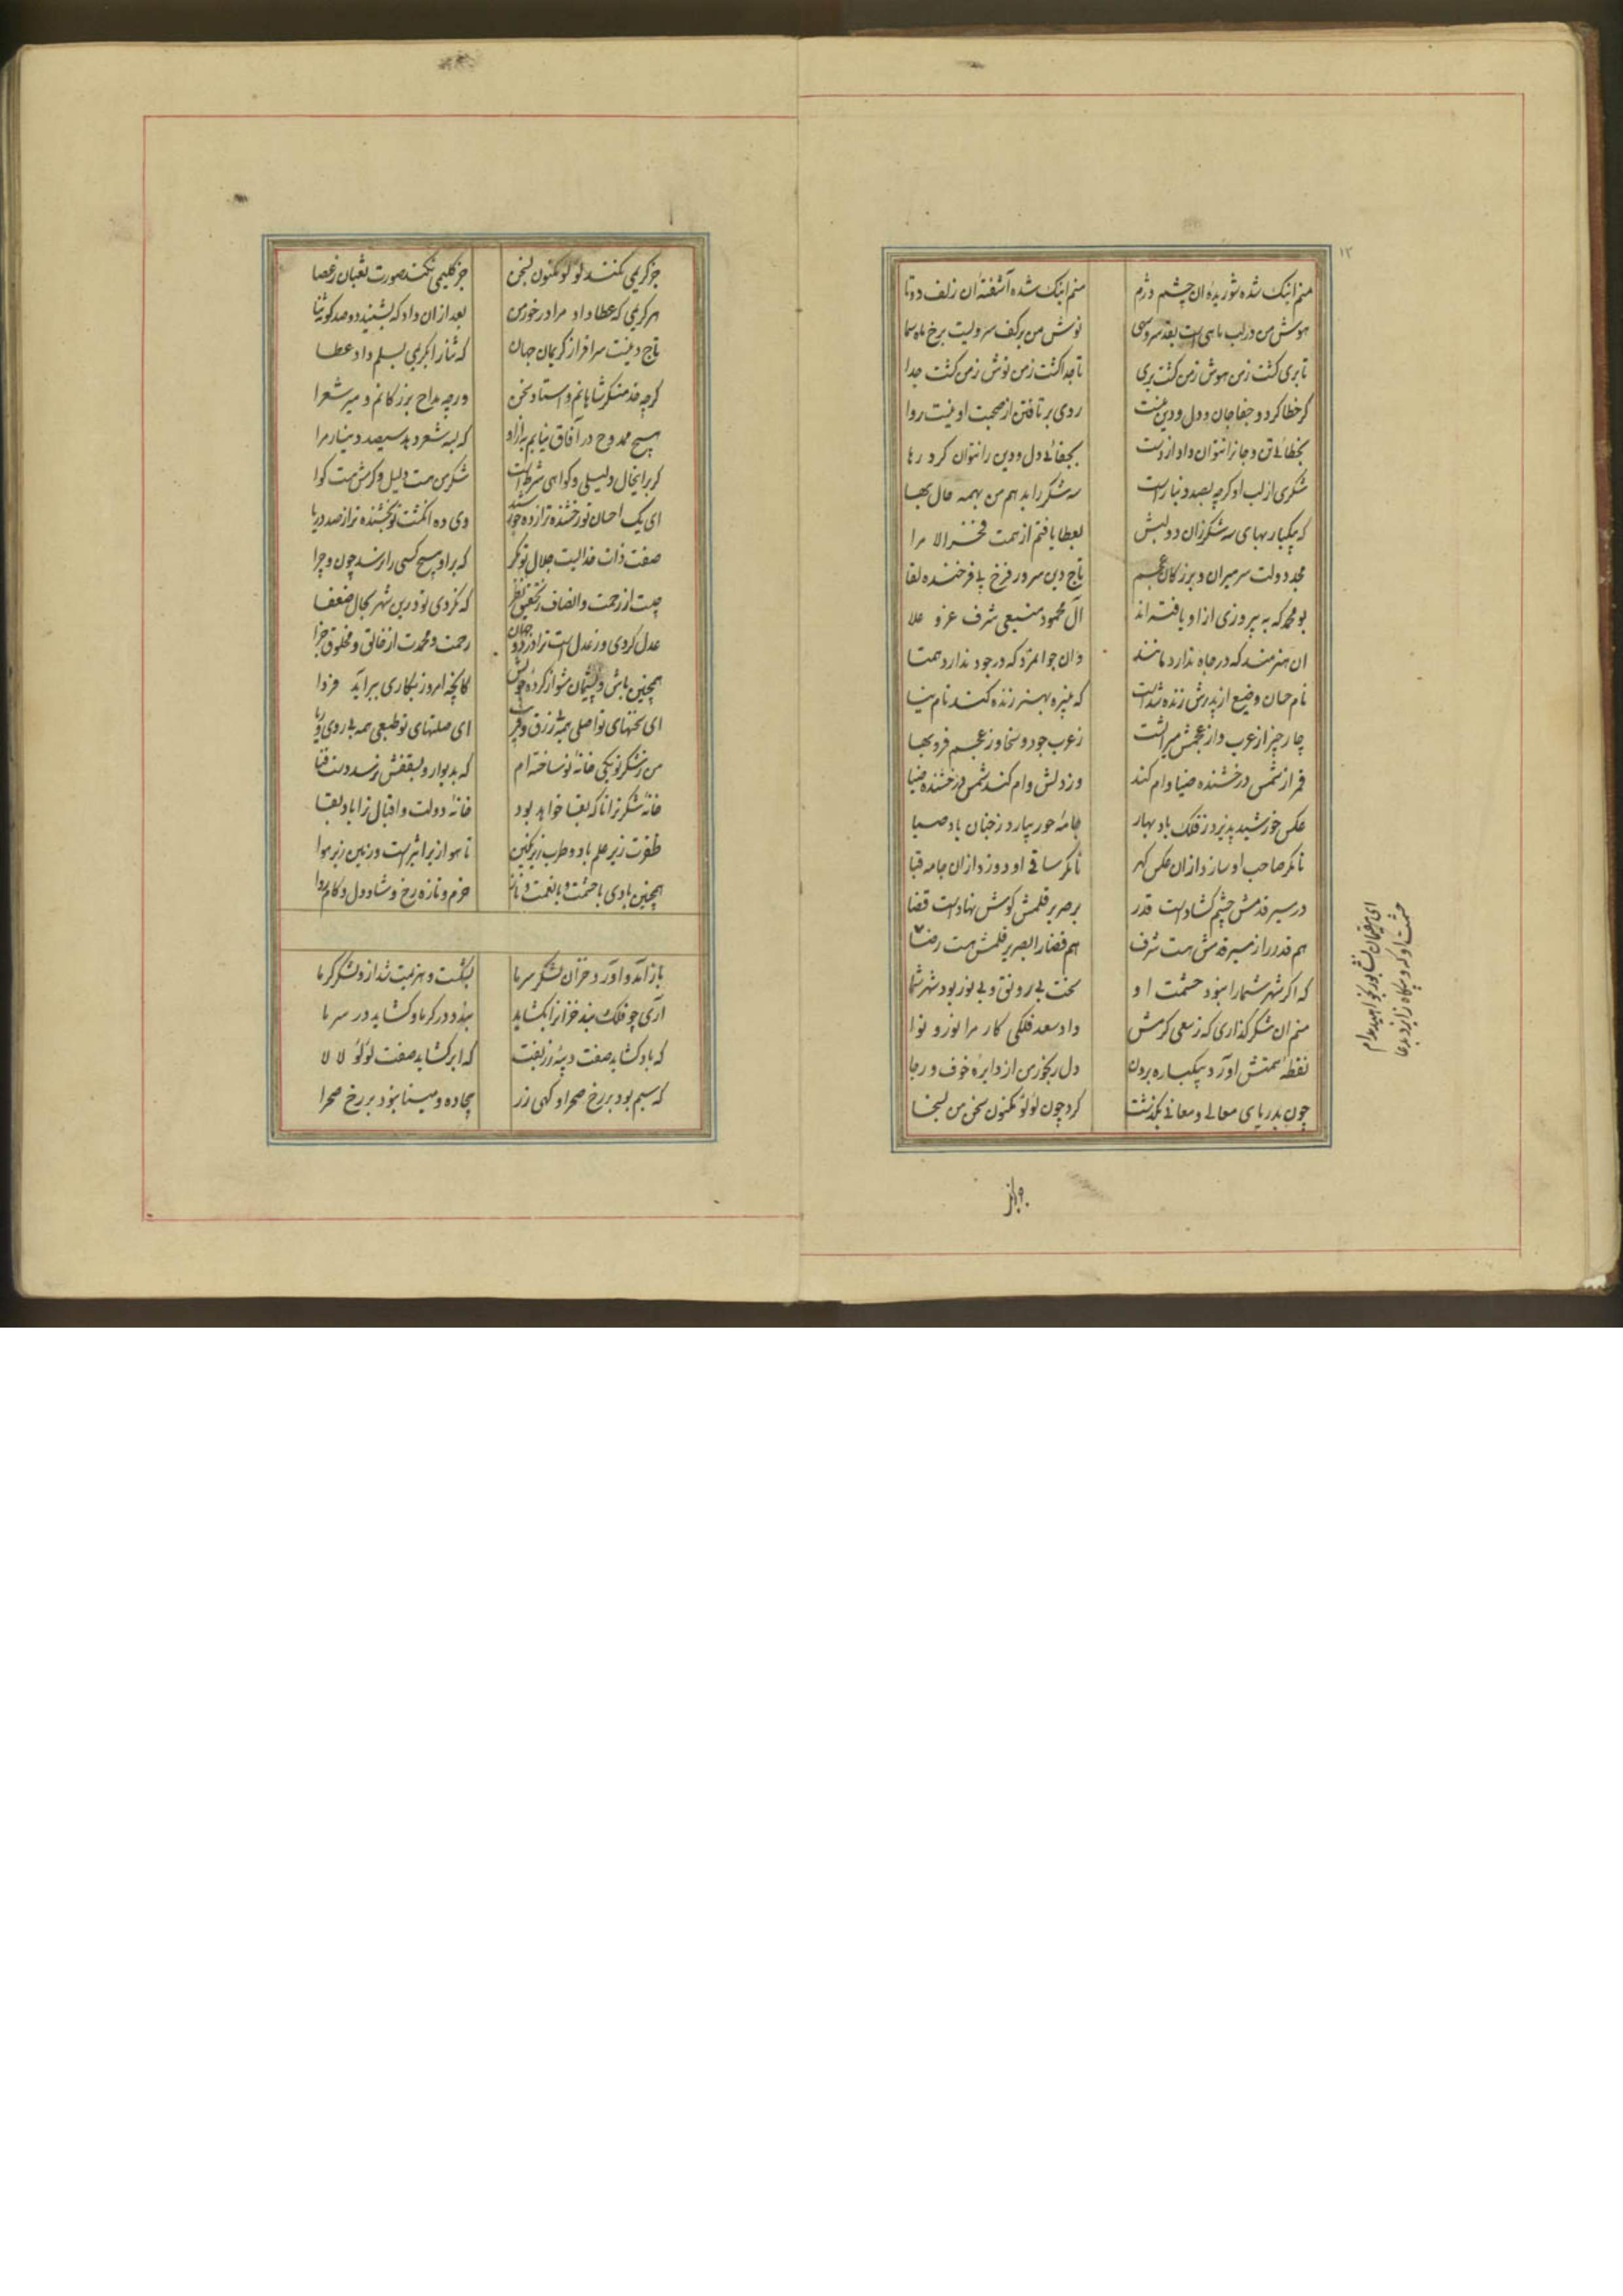 ۱۳
منم اینک شده شوریده ان چشم دژم منم اینک شده آشفته ان زلف دوتا
هوش من در لب ماهی است بقد سروسهی نوش من بر کف سرویست برخ ماه سما
تا بری گشت زمن هوش زمن گشت بری تا جدا گشت زمن نوش زمن گشت جدا
گر خطا کرد و جفا جان و دل و دین منست روی برتافتن از صحبت او نیست روا
بخطائی تن و جانرا نتوان داد از دست بجفائی دل و دین را نتوان کرد رها
شکری از لب او گرچه بصد دینار است سه شکر را بدهم من بهمه حال بها
که بیکبار بهای سه شکر زان دو لبش بعطا یافتم از همت فخر الامرا
مجد دولت سر میران و بزرگان عجم تاج دین سرور فرخ پی فرخنده لقا
بو محمد که به پیروزی ازاو یافته اند آل محمود منیعی شرف عز و علا
ان هنرمند که در جاه ندارد مانند وان جوانمرد که در جود ندارد همتا
نام حسان وضیع از پدرش زنده شداست که نبیره بهنر زنده کند نام نیا
چار چیز از عرب و از عجمش میراثست زعرب جود و سخا وز عجم فر و بها
قمر از شمس درخشنده ضیا وام کند وز دلش وام کند شمس درخشنده ضیا
عکس خورشید پذیرد ز فلک باد بهار جامه حور بیارد ز جنان باد صبا
تا مگر صاحب او سازد از ان عکس گهر تا مگر ساقی او دوزد از ان جامه قبا
در سیر قدمش چشم گشاداست قدر بر صریر قلمش گوش نهاداست قضا
هم قدر را ز سیر قدمش هست شرف هم قضا را بصریر قلمش هست رضا
که اگر شهر شما را نبود حشمت او سخت بی رونق و بی نور بود شهر شما
منم ان شکر گذاری که ز سعی کرمش داد سعد فلکی کار مرا نور و نوا
نقطه همتش آورد بیکباره برون دل رنجور من از دایره خوف و رجا
چون بدریای معالی و معانی بگذشت کرد چون لؤلؤ مکنون سخن من بسخا
ای مقیمان نشابور بخواهید مدام
حشمت او گه و بیگاه ز ایزد بدعا
جز کریمی نکند لؤلؤ مکنون بسخن جز کلیمی نکند صورت ثعبان ز عصا
هر کریمی که عطا داد مرا در خور من بعد از ان داد که بشنید دو صد گونه ثنا
تاج دینست سر افراز کریمان جهان که ثنا را بکریمی بسلم داد عطا
گرچه خدمتگر شاهانم و استاد سخن ورچه مداح بزرگانم و میر شعرا
هیچ ممدوح در آفاق نیابم به ازاو که بسه شعر دهد سیصد دینار مرا
گر برایحال دلیلی و گواهی شرط است شکر من هست دلیل و کرمش هست گوا
ای یک احسان تو رخشنده تر از ده خورشید وی ده انگشت تو بخشنده تر از صد دریا
صفت ذات خدائیست جلال تو مگر که براو هیچ کسی را نرسد چون و چرا
چیست از رحمت و انصاف بتحقیق نظر که نکردی تو درین شهر بحال ضعفا
عدل کردی و ز عدل است ترا در دو جهان رحمت و محمدت از خالق و مخلوق جزا
همچنین باش و پشیمان مشو از کرده خویش کانچه امروز بکاری ببر آید فردا
ای سخنهای تو اصلی همه بی زرق و فریب ای صلتهای تو طبعی همه بی روی و ریا
من ز شکر تو یکی خانه نو ساخته ام که بدیوار و بسقفش نرسد دست فنا
خانه شکر ترا تا که بقا خواهد بود خانه دولت و اقبال ترا باد بقا
تا هوا زیر اثیر است و زمین زیر هوا
همچنین بادی با حشمت و با نعمت و ناز خرم و تازه رخ و شاد دل و کام روا
باز آمد و آورد خزان لشکر سرما بشکست و هزیمت شد ازو لشکر گرما
آری چو فلک بند خزانرا بگشاید بندد در گرما و گشاید در سرما
که باد گشاید صفت دیبه زربفت که ابر گشاید صفت لؤلؤ لالا
که سیم بود بر رخ صحرا و گهی زر بیجاده و مینا نبود بر رخ صحرا